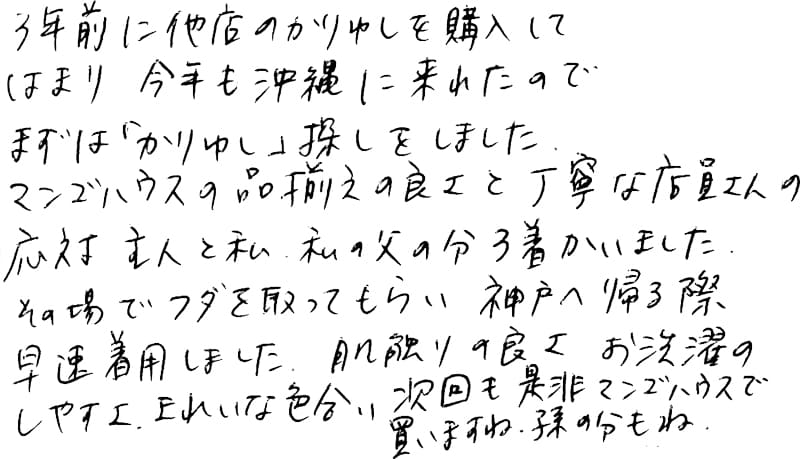 3年前に他店のかりゆしを購入して
はまり 今年も沖縄に来れたので
まずは「かりゆし」探しをしました.
マンゴハウスの品揃えの良さと丁寧な店員さんの
応対 主人と私. 私の父の分3着かいました.
その場でフダを取ってもらい 神戸へ帰る際
早速着用しました. 肌触りの良さ お洗濯の
しやすさ. きれいな色合い 次回も是非マンゴハウスで
買いますね. 孫の分もね.